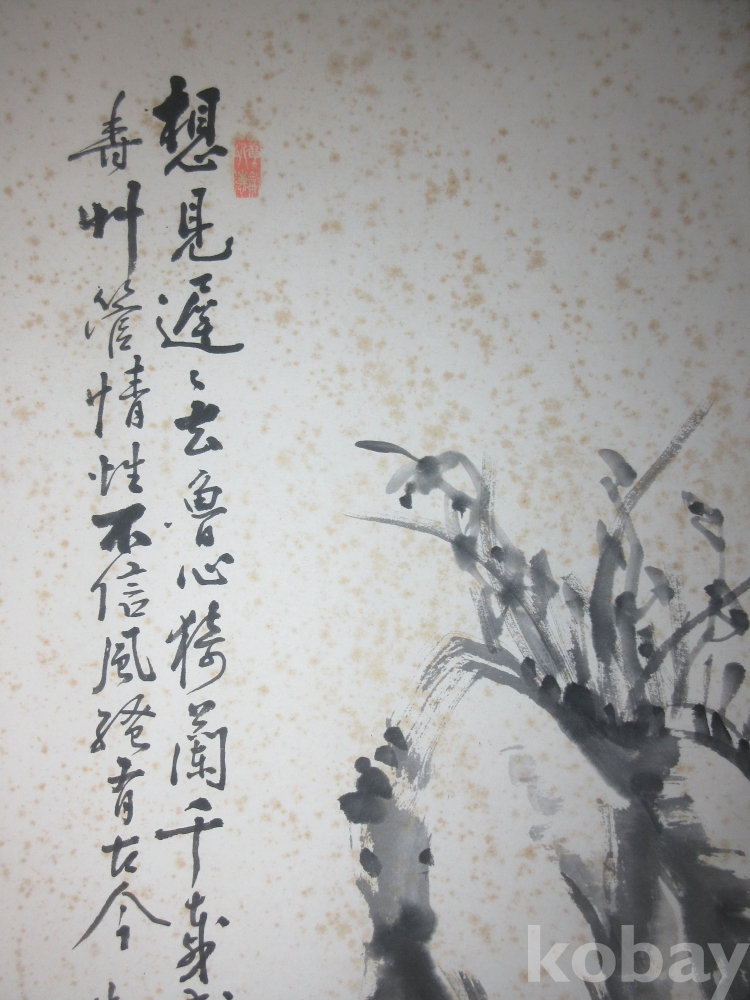 想見遲〻去魯心猗蘭千載
春艸管情性不信風騷有古今
kobay